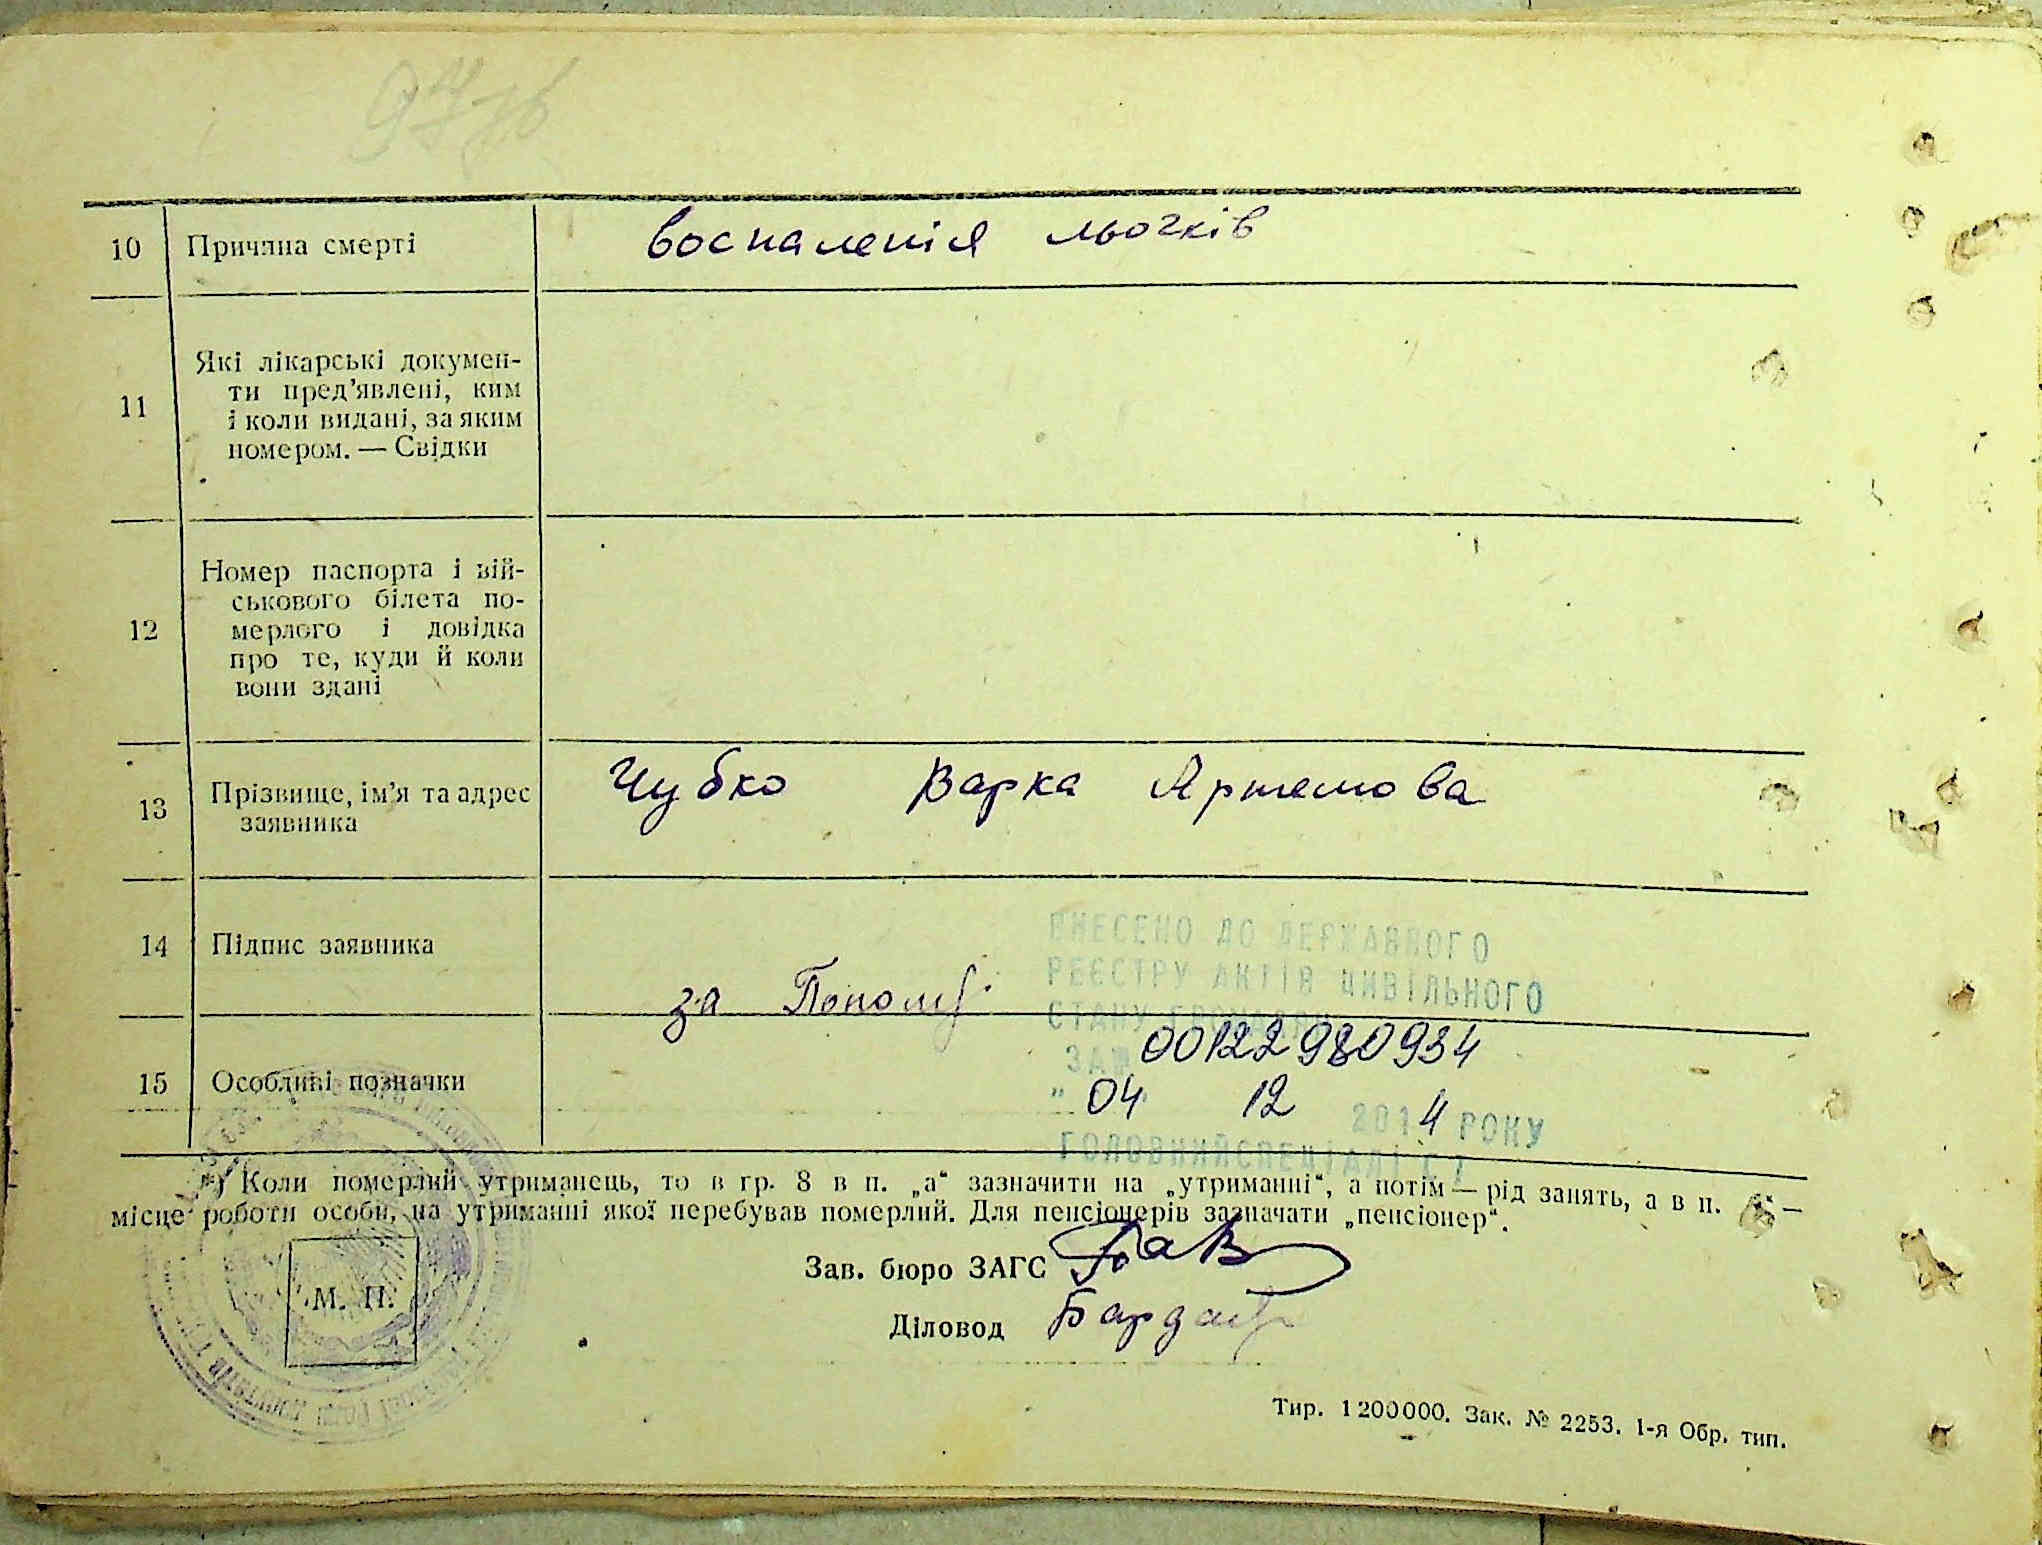 10 Причина смерті воспаленія льочків
11 Які лікарські докумен-
ти пред'явлені, ким
і коли видані, за яким
номером. — Свідки
12 Номер паспорта і вій-
ськового білета по-
мерлого і довідка
про те, куди й коли
вони здані
13 Прізвище, ім'я та адрес
заявника
Чубко Варка Артемова
14 Підпис заявника
за
ВНЕСЕНО ДО ДЕРЖАВНОГО
РЕЄСТРУ АКТІВ ЦИВІЛЬНОГО
СТАНУ ГРОМАДЯН
ЗА № 00122980934
" 04 " 12 2014 РОКУ
ГОЛОВНИЙ СПЕЦІАЛІСТ
15 Особливі позначки
*) Коли померлий утриманець, то в гр. 8 в п. „а“ зазначити на „утриманні“, а потім — рід занять, а в п. —
місце роботи особи, на утриманні якої перебував померлий. Для пенсіонерів зазначати „пенсіонер“.
Зав. бюро ЗАГС
М. П.
Діловод
Тир. 1200000. Зак. № 2253. 1-я Обр. тип.